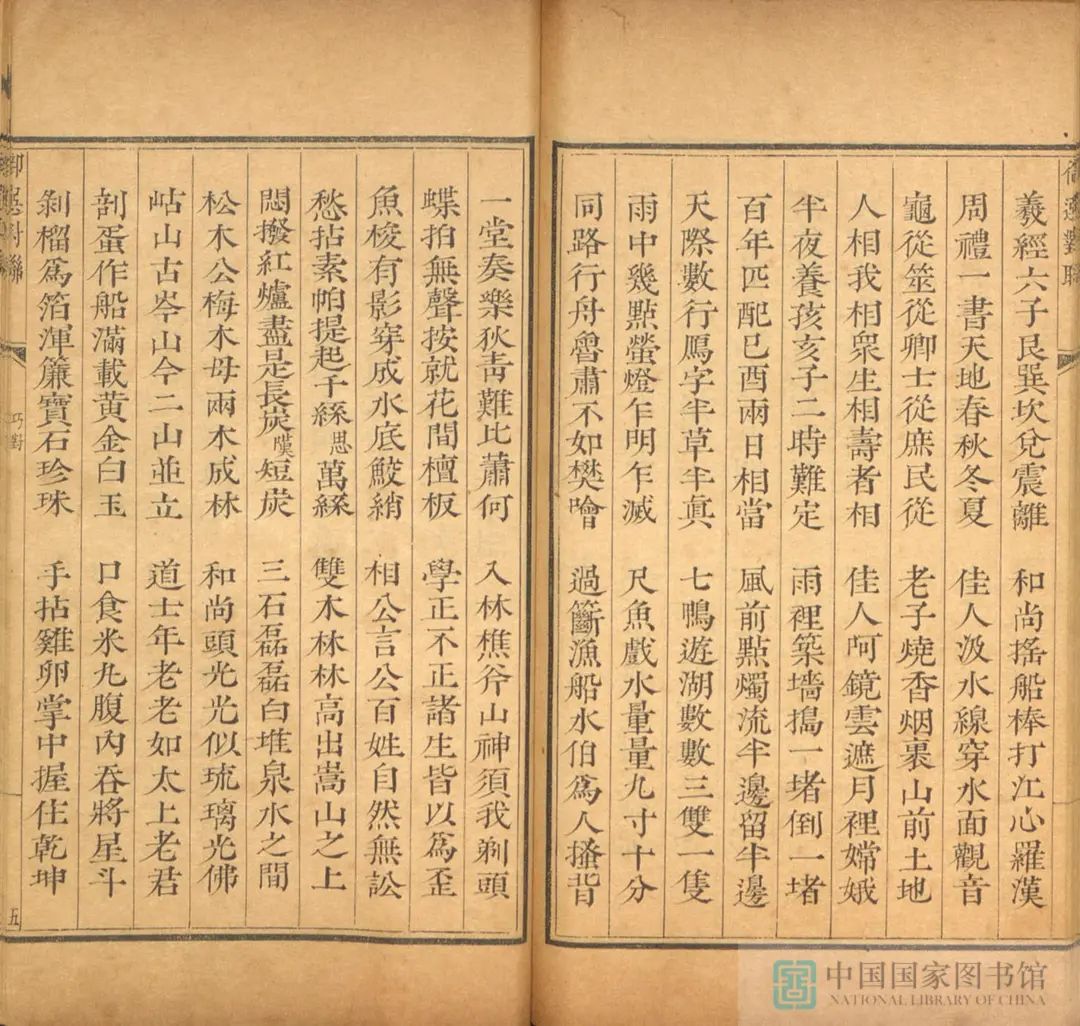 羲經六子艮巽坎兌震離　和尚搖船棒打江心羅漢
周禮一書天地春秋冬夏　佳人汲水線穿水面觀音
龜從筮從卿士從庶民從　老子燒香烟裹山前土地
人相我相眾生相壽者相　佳人阿鏡雲遮月裡嫦娥
半夜養孩亥子二時難定　雨裡築墻搗一堵倒一堵
百年匹配巳酉兩日相當　風前點燭流半邊留半邊
天際數行鴈字半草半眞　七鴨遊湖數數三雙一隻
雨中幾點螢燈乍明乍滅　尺魚戲水量量九寸十分
同路行舟魯肅不如樊噲　過籪漁船水伯爲人搔背
一堂奏樂狄靑難比蕭何　入林樵斧山神須我剃頭
蝶拍無聲按就花間檀板　學正不正諸生皆以爲歪
魚梭有影穿成水底鮫綃　相公言公百姓自然無訟
愁拈素帕提起千絲思萬絲　雙木林林高出嵩山之上
悶撥紅爐盡是長炭嘆短炭　三石磊磊白堆泉水之間
松木公梅木母兩木成林　和尚頭光光似琉璃光佛
岵山古岑山今二山並立　道士年老老如太上老君
剖蛋作船滿載黃金白玉　口食米丸腹內吞將星斗
剝榴爲箔渾簾寶石珍珠　手拈雞卵掌中握住乾坤
巧對
五
中国国家图书馆
NATIONAL LIBRARY OF CHINA